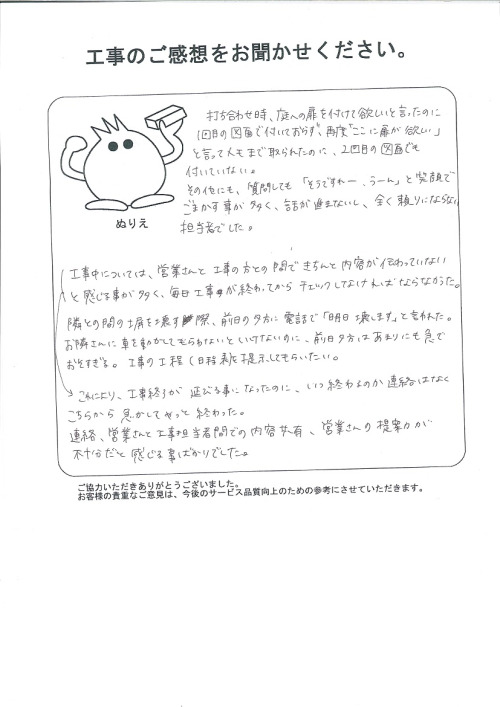 工事のご感想をお聞かせください。
打ち合わせ時、庭への扉を付けて欲しいと言ったのに
1回目の図面で付いておらず、再度"ここに扉が欲しい"
と言ってメモまで取られたのに、2回目の図面でも
付いていない。
その他にも、質問しても「そうですねー、うーん」と笑顔で
ごまかす事が多く、話が進まないし、全く頼りにならない
担当者でした。
ぬりえ
工事中については、営業さんと工事の方との間できちんと内容が伝わっていない
と感じる事が多く、毎日工事が終わってからチェックしなければならなかった。
隣との間の塀を壊す際、前日の夕方に電話で「明日壊します」と言われた。
お隣さんに車を動かしてもらわないといけないのに、前日夕方はあまりにも急で
おそすぎる。工事の工程(日程表)を提示してもらいたい。
これにより、工事終了が延びる事になったのに、いつ終わるのか連絡はなく
こちらから急かしてやっと終わった。
連絡、営業さんと工事担当者間での内容共有、営業さんの提案力が
不十分だと感じる事ばかりでした。
ご協力いただきありがとうございました。
お客様の貴重なご意見は、今後のサービス品質向上のための参考にさせていただきます。